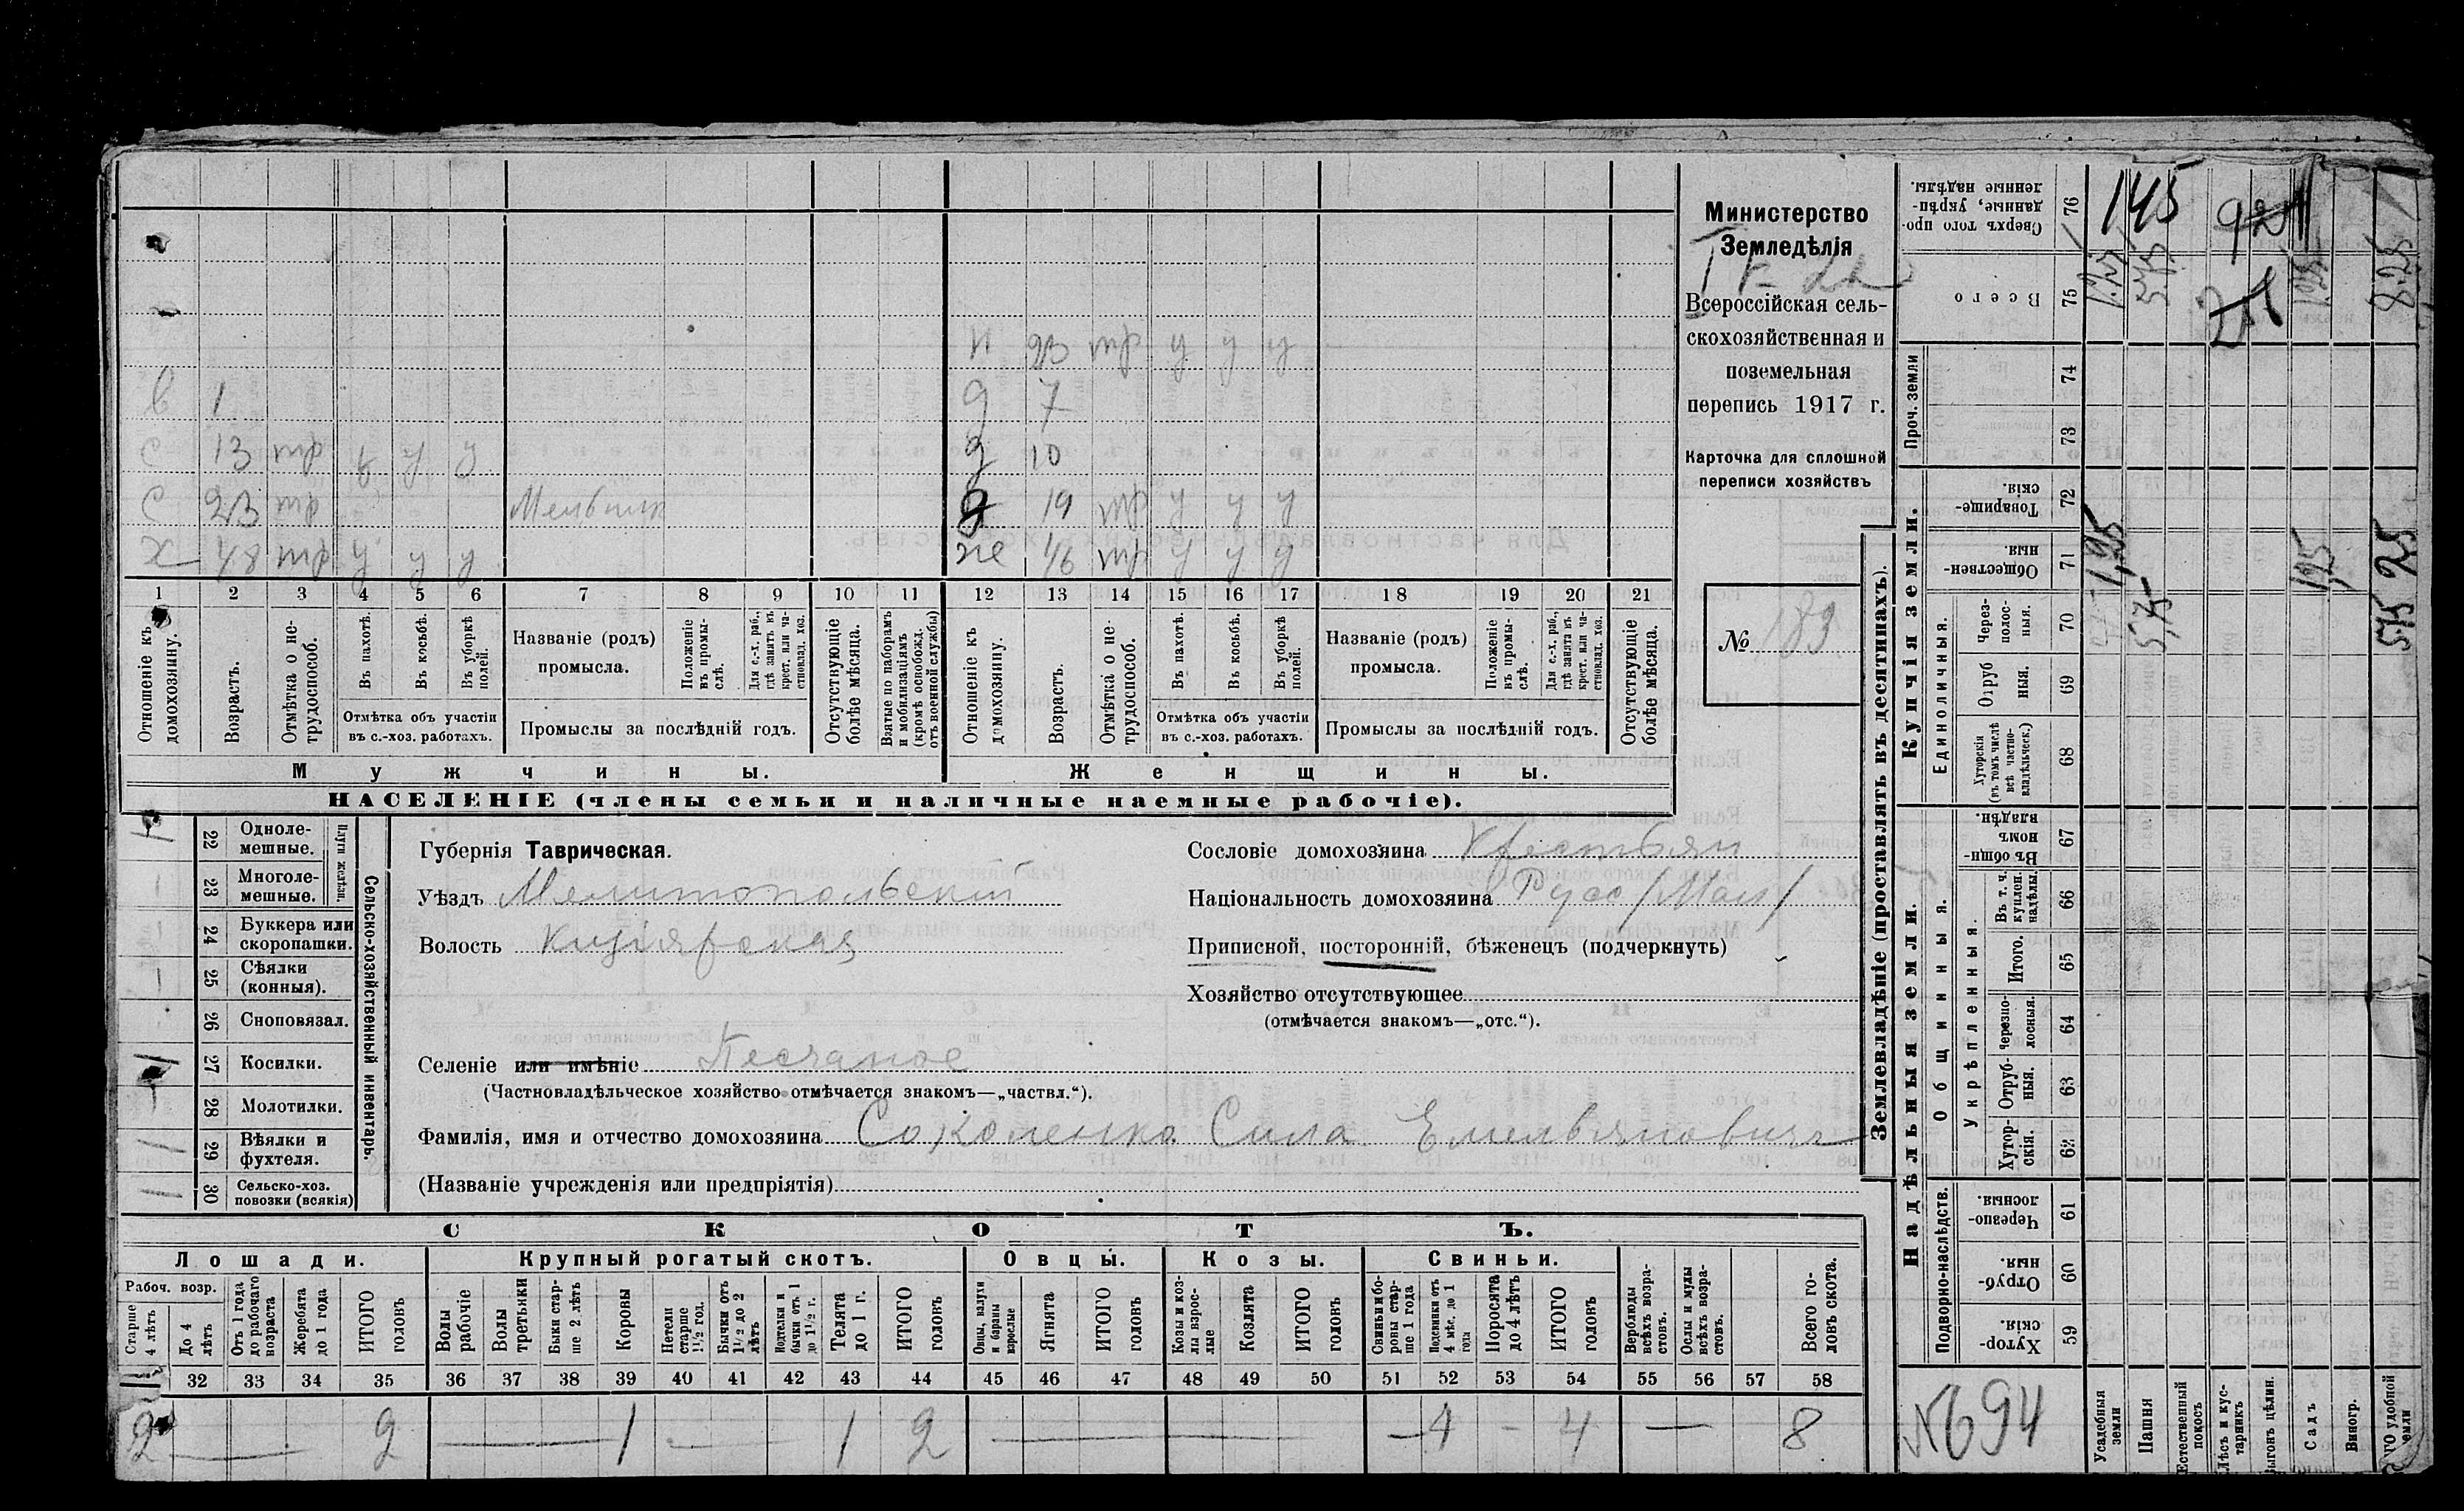 в 1
с 13 тр у у у
с 23 тр Мельник
х 48 тр у у у
н 23 тр у у у
д 7
д 10
д 19 тр у у у
же 46 тр у у у
1 2 3 4 5 6 7 8 9 10 11 12 13 14 15 16 17 18 19 20 21
Отношеніе къ домохозяину.
Возрастъ.
Отмѣтка о не-трудоспособ.
Въ пахотѣ.
Въ косьбѣ.
Въ уборкѣ полей.
Отмѣтка объ участіи
въ с.-хоз. работахъ.
Названіе (родъ)
промысла.
Положеніе въ промы-слѣ.
Для с.-х. раб., гдѣ занятъ въ крест. или ча-стновлад. хоз.
Промыслы за послѣдній годъ.
Отсутствующіе болѣе мѣсяца.
Взятые по наборамъ и мобилизаціямъ (кромѣ освобожд. отъ военной службы)
Отношеніе къ домохозяину.
Возрастъ.
Отмѣтка о не-трудоспособ.
Въ пахотѣ.
Въ косьбѣ.
Въ уборкѣ полей.
Отмѣтка объ участіи
въ с.-хоз. работахъ.
Названіе (родъ)
промысла.
Положеніе въ промы-слѣ.
Для с.-х. раб., гдѣ занятъ въ крест. или ча-стновлад. хоз.
Промыслы за послѣдній годъ.
Отсутствующіе болѣе мѣсяца.
Мужчины.
Женщины.
НАСЕЛЕНІЕ (члены семьи и наличные наемные рабочіе).
Министерство
Земледѣлія
Всероссійская сель-
скохозяйственная и
поземельная
перепись 1917 г.
Карточка для сплошной
переписи хозяйствъ
№ 189
22 Одноле-
мешные.
23 Многоле-
мешные.
Плуги желѣзн.
24 Буккера или
скоропашки.
25 Сѣялки
(конныя).
26 Сноповязал.
27 Косилки.
28 Молотилки.
29 Вѣялки и
фухтеля.
30 Сельско-хоз.
повозки (всякія)
Сельско-хозяйственный инвентарь.
Губернія Таврическая.
Уѣздъ Мелитопольскій
Волость Кизіярская
Селеніе или имѣніе Песчаное
(Частновладѣльческое хозяйство отмѣчается знакомъ—„частвл.“).
Фамилія, имя и отчество домохозяина Соколенко Сила Емельяновичъ
(Названіе учрежденія или предпріятія)
Сословіе домохозяина Крестьян
Національность домохозяина Русс /Мал/
Приписной, посторонній, бѣженецъ (подчеркнуть)
Хозяйство отсутствующее
(отмѣчается знакомъ—„отс.“).
СКОТЪ.
Лошади. Крупный рогатый скотъ. Овцы. Козы. Свиньи.
Рабоч. возр.
Старше 4 лѣтъ
До 4 лѣтъ
Отъ 1 года до рабочаго возраста
Жеребята до 1 года
ИТОГО головъ
Волы рабочіе
Волы третьяки
Быки стар-ше 2 лѣтъ
Коровы
Нетели старше 1½ год.
Бычки отъ 1½ до 2 лѣтъ
Подтелки и бычки отъ 1 до 1½ г.
Телята до 1 г.
ИТОГО головъ
Овцы, валухи и бараны взрослые
Ягнята
ИТОГО головъ
Козы и коз-лы взрос-лые
Козлята
ИТОГО головъ
Свиньи и бо-ровы стар-ше 1 года
Подсвинки отъ 4 мѣс. до 1 года
Поросята до 4 лѣтъ
ИТОГО головъ
Верблюды всѣхъ возра-стовъ.
Ослы и мулы всѣхъ возра-стовъ.
Всего го-ловъ скота.
32 33 34 35 36 37 38 39 40 41 42 43 44 45 46 47 48 49 50 51 52 53 54 55 56 57 58
2 — 2 — 1 — 1 2 — — 4 - 4 — 8
Землевладѣніе (проставлять въ десятинахъ).
Купчія земли.
Надѣльныя земли.
Проч. земли
Единоличныя.
Общинныя.
Укрѣпленныя.
Подворно-наслѣдств.
76 Сверхъ того про-данные, укрѣп-ленные надѣлы.
75 Всего
74
73
72 Товарище-скія.
71 Обществен-ныя
70 Через-полос-ныя.
69 Отруб ныя.
68 Хуторскія (въ томъ числѣ всѣ частно-владѣльческ.)
67 Въ общи-номъ владѣн.
66 Въ т. ч. куплен. надѣлы.
65 Итого.
64 Черезпо-лосныя.
63 Отруб-ныя.
62 Хутор-скія.
61 Черезпо-лосныя.
60 Отруб-ныя.
59 Хутор-скія.
145
1,25
5,75
1,25
8 25
1,25
5,75
1,25
№694
Усадебныя земли
Пашня
Естественный покосъ
Лѣсъ и кус-тарникъ
Выгонъ цѣлин.
Садъ
Виногр.
удобной земли